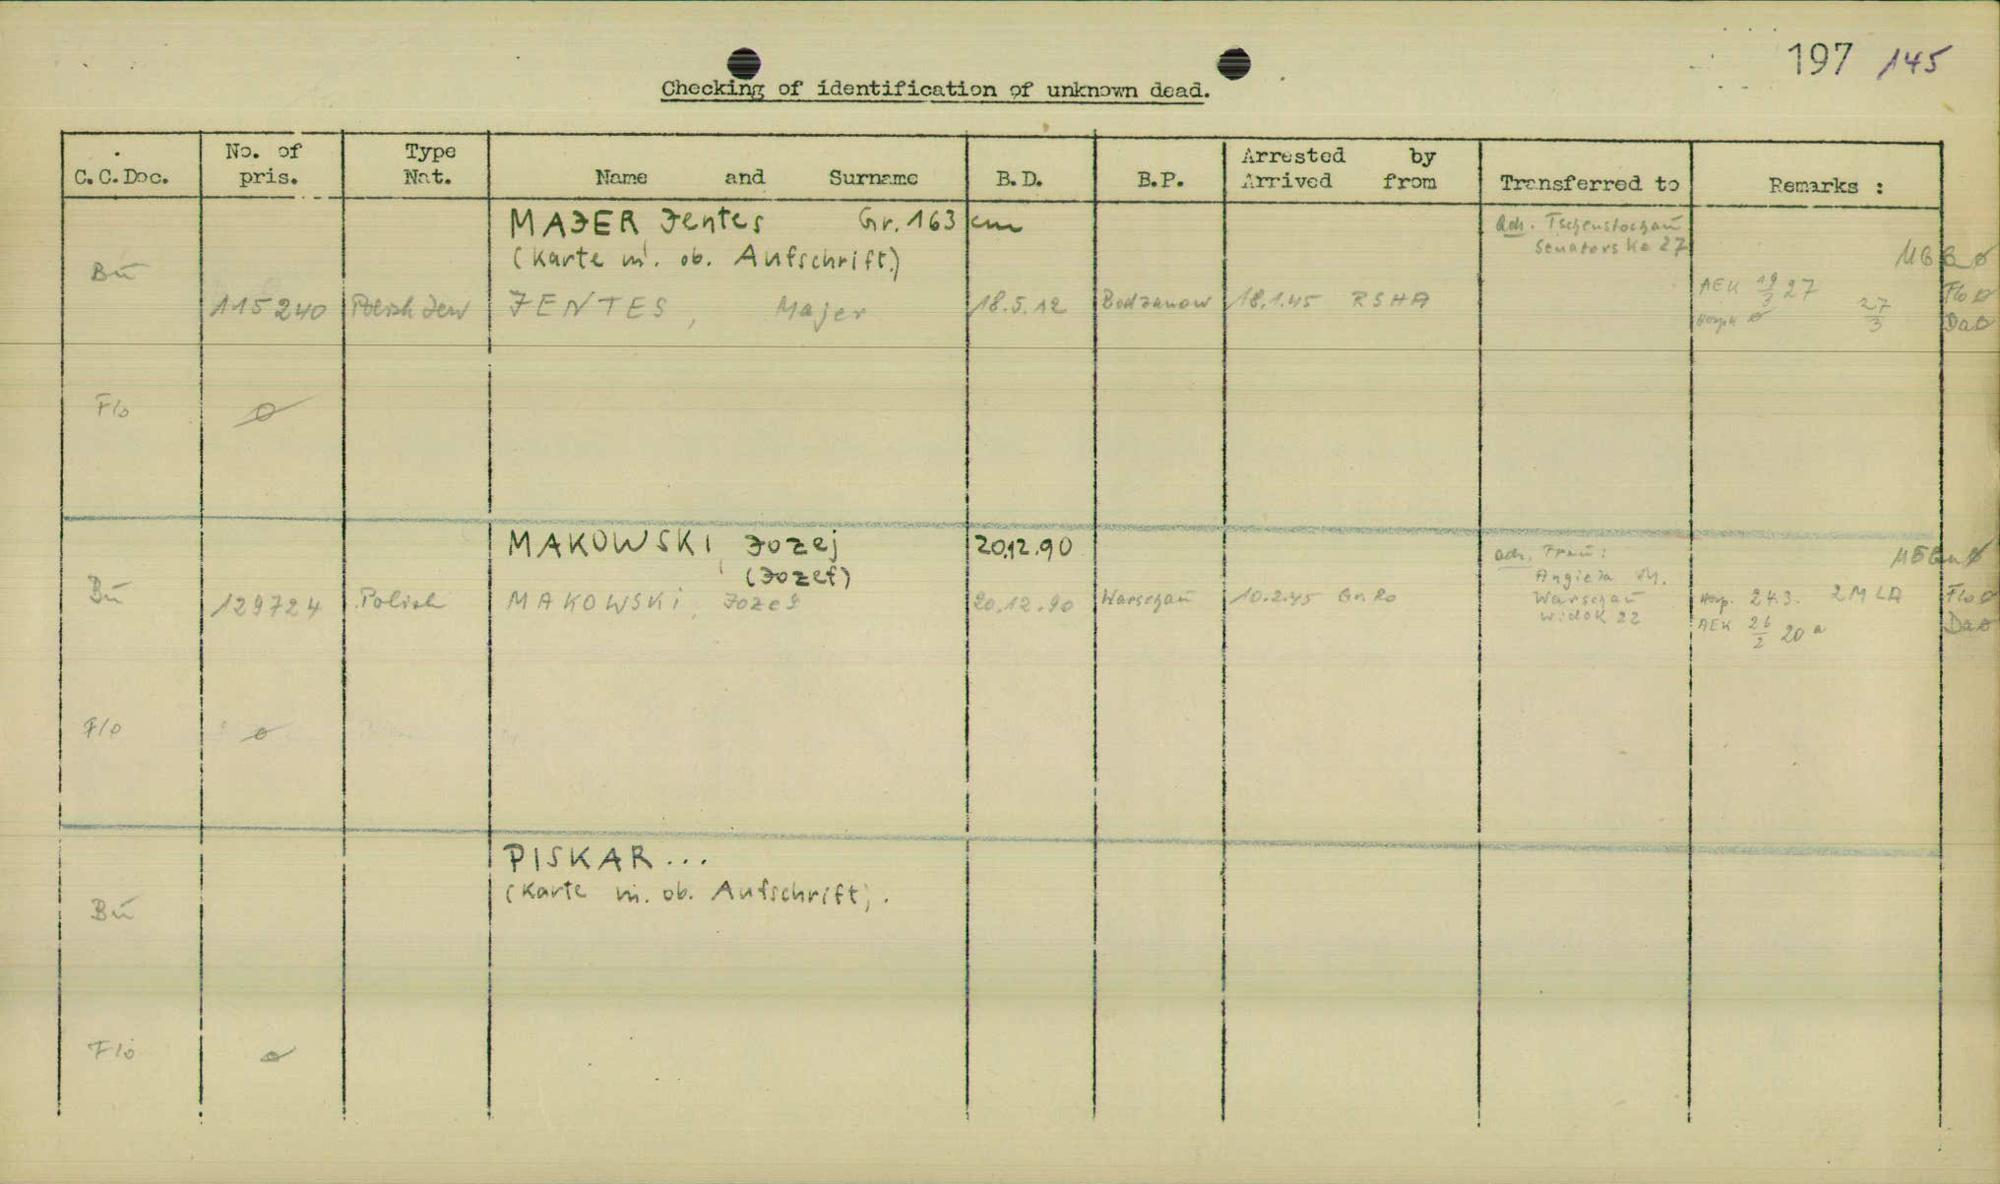 197 145
Checking of identification of unknown dead.
C.C.Doc.
No. of pris.
Type Nat.
Name and Surname
B.D.
B.P.
Arrested by
Arrived from
Transferred to
Remarks :
MAJER Jentes Gr. 163 cm
(Karte m. ob. Aufschrift.)
Bu 115240 Polish Jew JENTES, Majer 18.5.12 Bodzanow 18.1.45 RSHA
Adr. Tschenstochau
Senatorska 27
AEK 19/3 27
27/3
Flo ø
Da ø
Flo ø
MAKOWSKI, Jozej 20.12.90
(Jozef)
Bu 129724 Polish MAKOWSKI, Jozef 20.12.90 Warschau 10.2.45 Gr. Ro
adr. Frau:
Angiela M.
Warschau
Widok 22
Hosp. 24.3. 2M LA
AEK 26/2 20a
Flo ø
Da ø
Flo ø
PISKAR...
(Karte m. ob. Aufschrift).
Bu
Flo ø